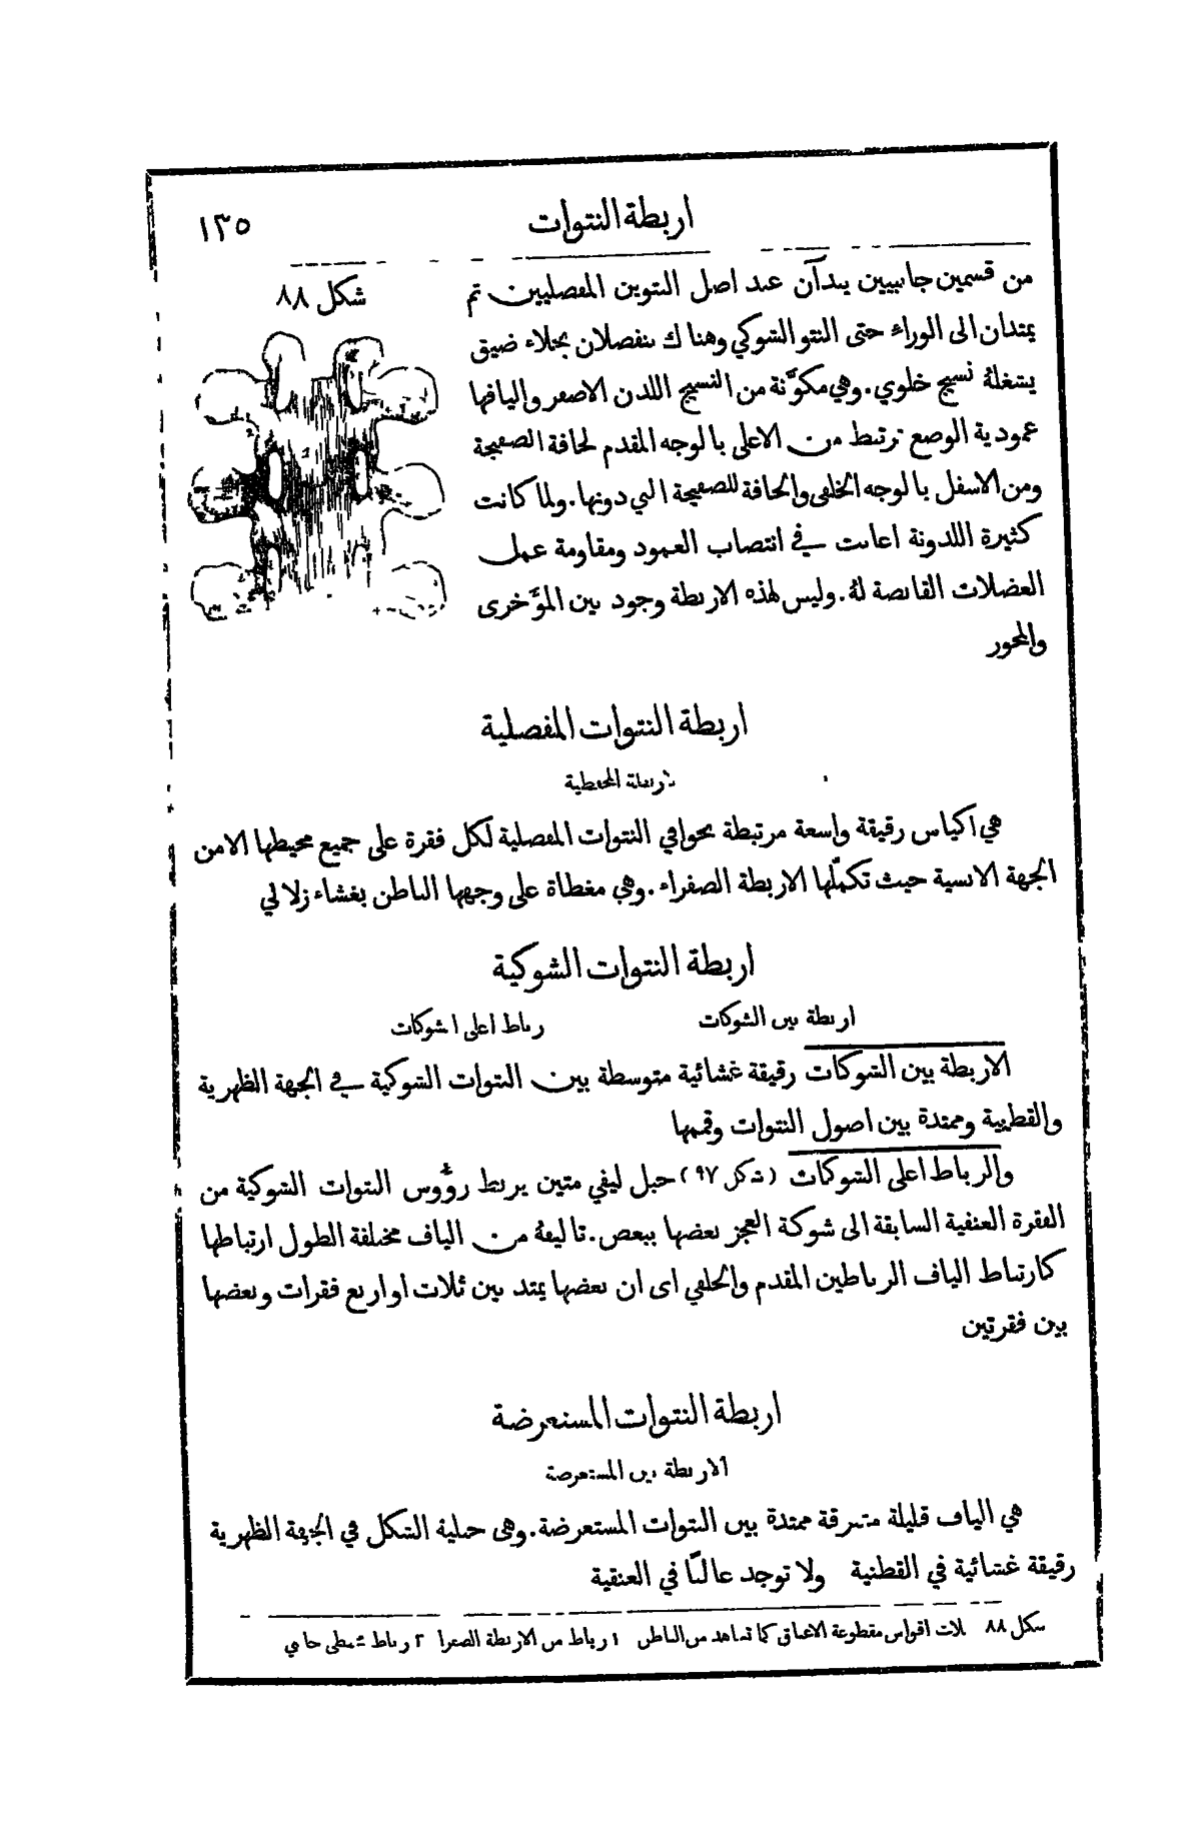 اربطة النتوات
١٣٥
من قسمين جانبيين يبدآن عند اصل النتوين المفصليين ثم
شكل ٨٨
يمتدان الى الوراء حتى النتو الشوكي وهناك ينفصلان بخلاء ضيق
يشغلهُ نسيج خلوي. وهي مكوَّنة من النسيج اللدن الاصفر واليافها
عمودية الوضع ترتبط من الاعلى بالوجه المقدم لحافة الصفيحة
ومن الاسفل بالوجه الخلفي والحافة للصفيحة التي دونها. ولما كانت
كثيرة اللدونة اعانت في انتصاب العمود ومقاومة عمل
العضلات القابضة لهُ. وليس لهذه الاربطة وجود بين المؤخرى
والمحور
اربطة النتوات المفصلية
الاربطة المحفظية
هي اكياس رقيقة واسعة مرتبطة بحوافي النتوات المفصلية لكل فقرة على جميع محيطها الا من
الجهة الانسية حيث تكمّلها الاربطة الصفراء. وهي مغطاة على وجهها الباطن بغشاء زلالي
اربطة النتوات الشوكية
اربطة بين الشوكات
رباط اعلى الشوكات
الاربطة بين الشوكات رقيقة غشائية متوسطة بين النتوات الشوكية في الجهة الظهرية
والقطنية وممتدة بين اصول النتوات وقممها
والرباط اعلى الشوكات (شكل ٩٧) حبل ليفي متين يربط رؤوس النتوات الشوكية من
الفقرة العنقية السابعة الى شوكة العجز بعضها ببعض. تاليفهُ من الياف مختلفة الطول ارتباطها
كارتباط الياف الرباطين المقدم والخلفي اى ان بعضها يمتد بين ثلاث او اربع فقرات وبعضها
بين فقرتين
اربطة النتوات المستعرضة
الاربطة بين المستعرضة
هي الياف قليلة متفرقة ممتدة بين النتوات المستعرضة. وهى حبلية الشكل في الجهة الظهرية
رقيقة غشائية في القطنية ولا توجد غالبًا في العنقية
شكل ٨٨ ثلاث اقواس مقطوعة الاعناق كما تشاهد من الباطن ١ رباط من الاربطة الصفرا ٢ رباط محفظي جانبي